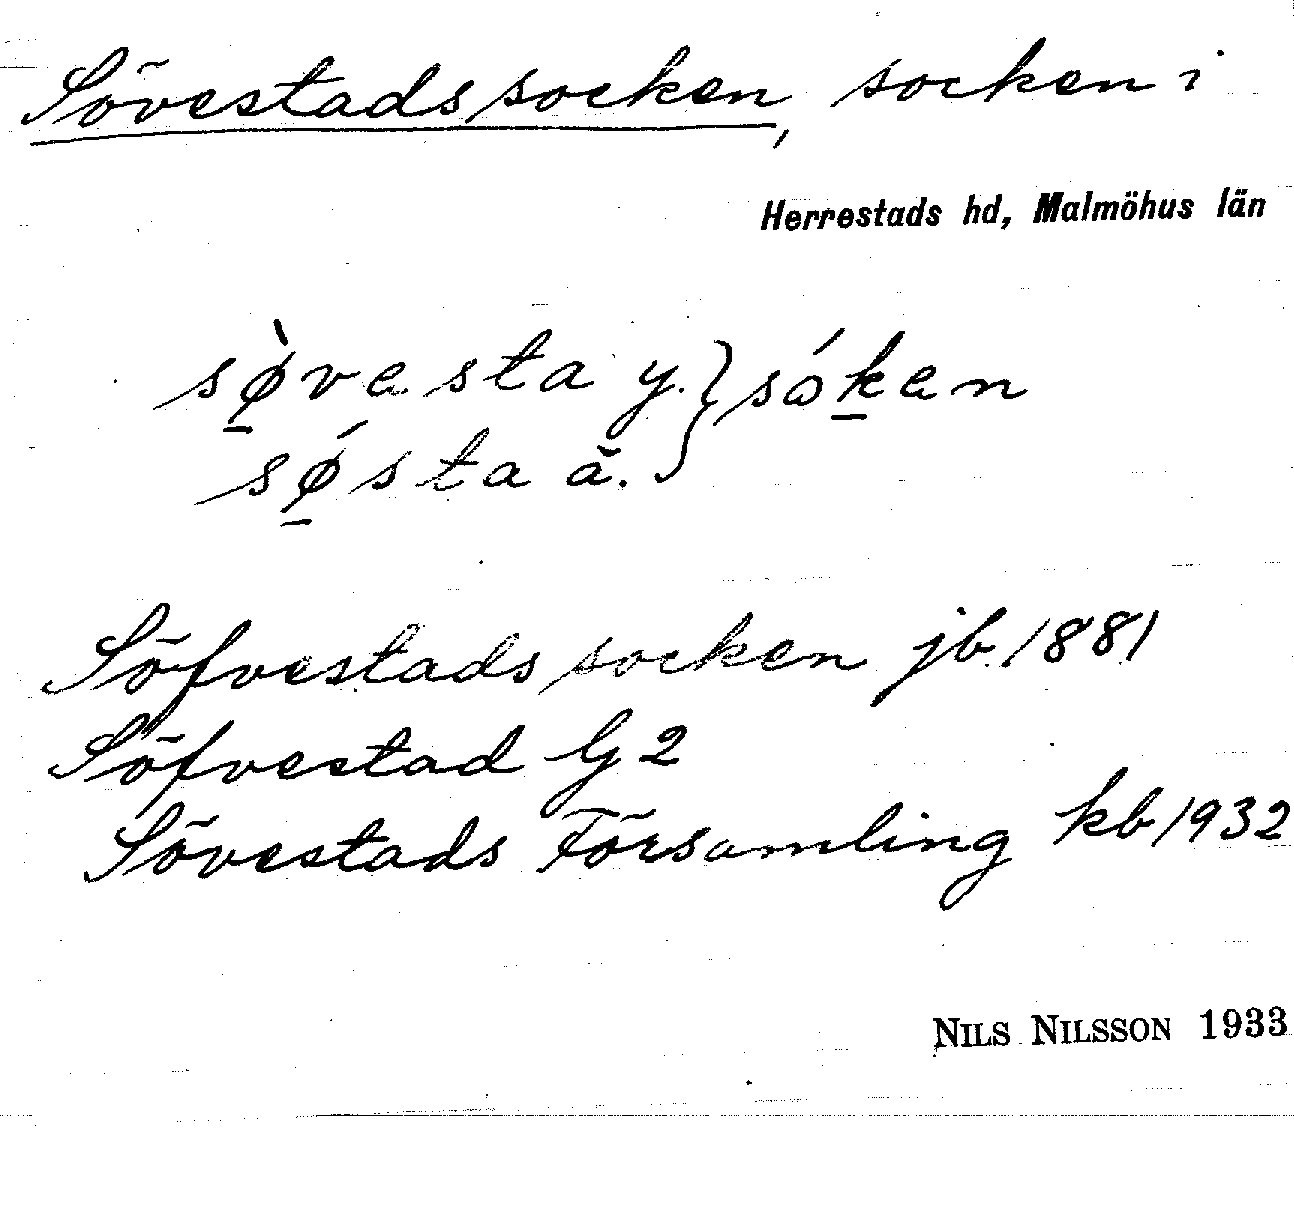 Sövestads socken, socken i
Herrestads hd, Malmöhus län
sø̱̀vesta y. } só̱ḵen
sǿ̱sta ä. }
Söfvestads socken jb 1881
Söfvestad G 2
Sövestads Församling kb 1932
NILS NILSSON 1933